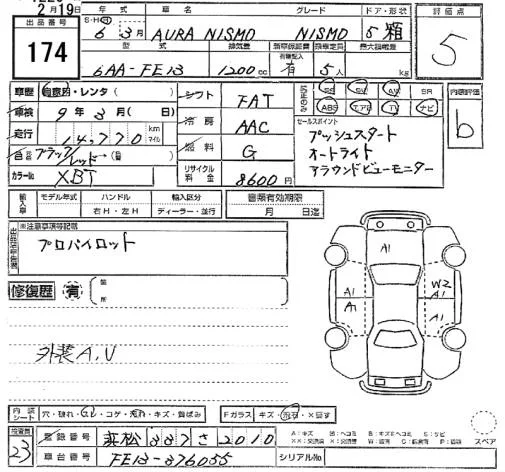 2月19日
出品番号 174
年式 車名 グレード ドア・形状 評価点
S・H・R 6年3月 AURA NISMO NISMO 5 箱 5
型式 排気量 乗車定員 最大積載量
6AA-FE13 1200cc 有 5人 kg
車歴 自家用・レンタ( )
車検 9年3月( 日)
走行 14,770 km マイル
色 ブラック/レッド→( 色)
カラーNo XBT
シフト FAT
冷房 AAC
燃料 G
リサイクル料金 8600円
SR AW SR
ABS エアB TV ナビ
内装評価 b
セールスポイント
プッシュスタート
オートライト
アラウンドビューモニター
輸入車 モデル年式 ハンドル 輸入区分
年 右H・左H ディーラー・並行
車両有効期限
月 日迄
※注意事項等記載
プロパイロット
修復歴 有 箇所
A1
A1 W2
A1
A1 A1
外装A,U
内装シート 穴・破れ・コゲ・汚れ・キズ・黄ばみ
Fガラス キズ・飛石・×要す
23
登録番号 浜松 337 さ 2010
車台番号 FE13-376055
シリアルNo
スペア